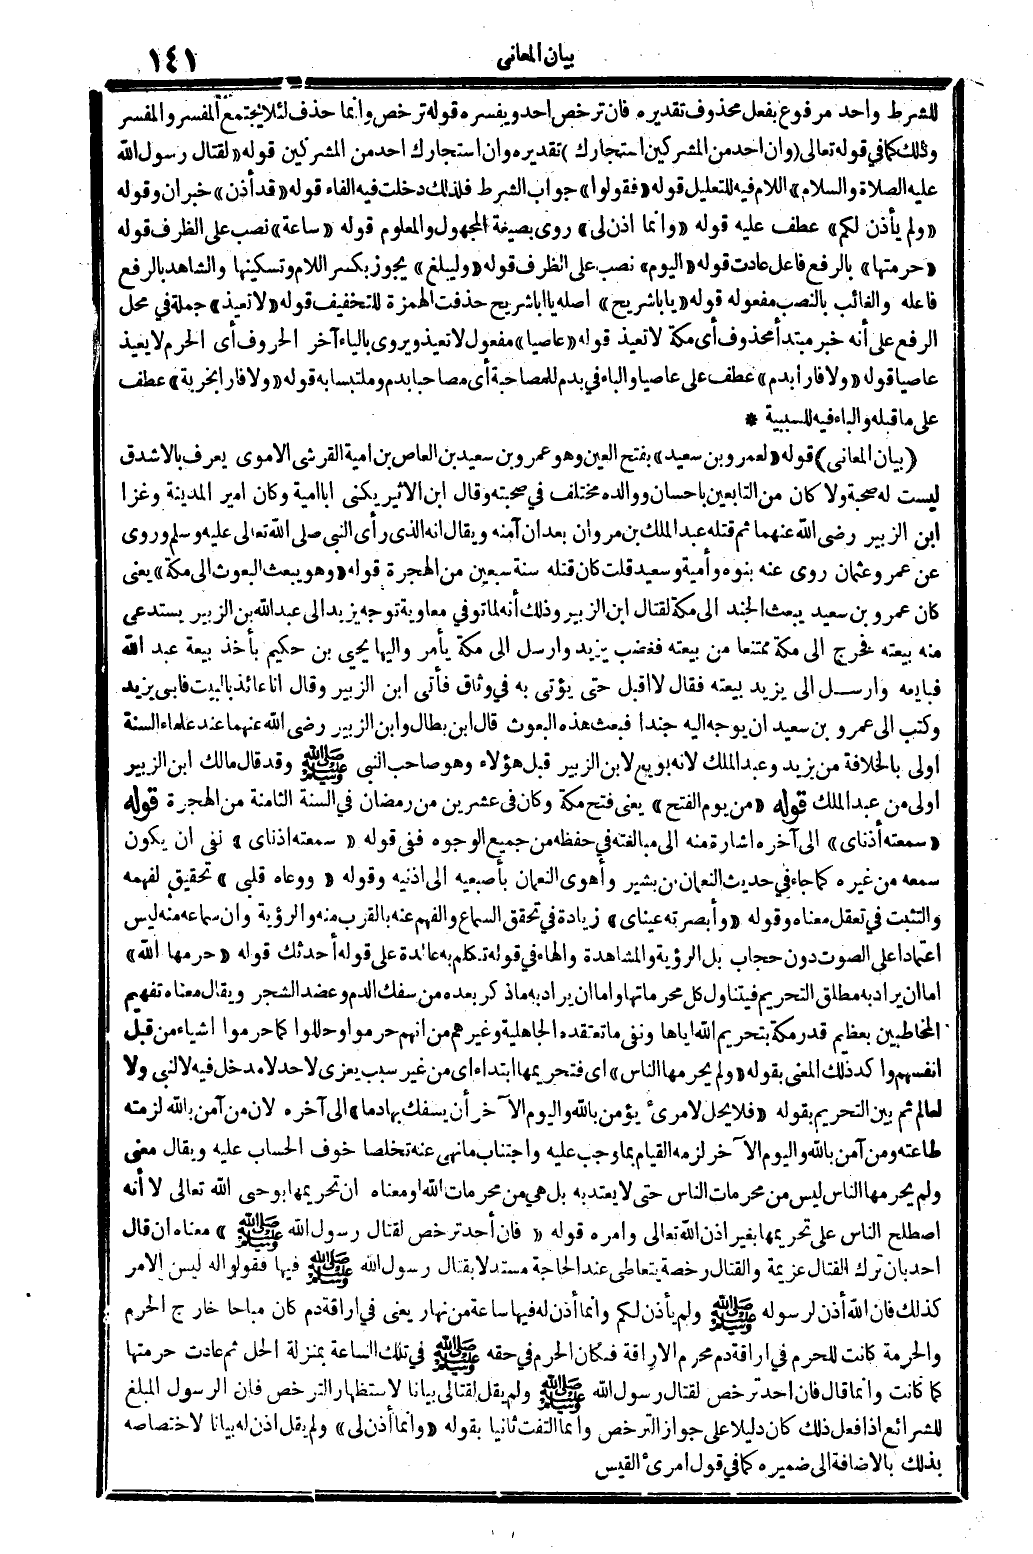 بيان المعانى ١٤١
للشرط واحد مرفوع بفعل محذوف تقديره فان ترخص احد ويفسره قوله ترخص وانما حذف لئلا يجتمع المفسر والمفسر
وذلك كما في قوله تعالى (وان احد من المشركين استجارك) تقديره وان استجارك احد من المشركين قوله «لقتال رسول الله
عليه الصلاة والسلام» اللام فيه للتعليل قوله «فقولوا» جواب الشرط فلذلك دخلت فيه الفاء قوله «قد أذن» خبر ان وقوله
«ولم يأذن لكم» عطف عليه قوله «وانما اذن لى» روى بصيغة المجهول والمعلوم قوله «ساعة» نصب على الظرف قوله
«حرمتها» بالرفع فاعل عادت قوله «اليوم» نصب على الظرف قوله «وليبلغ» يجوز بكسر اللام وتسكينها والشاهد بالرفع
فاعله والغائب بالنصب مفعوله قوله «يا باشريح» اصله يا اباشريح حذفت الهمزة للتخفيف قوله «لا تعيذ» جملة في محل
الرفع على أنه خبر مبتدأ محذوف أى مكة لا تعيذ قوله «عاصيا» مفعول لا تعيذ ويروى بالياء آخر الحروف أى الحرم لا يعيذ
عاصيا قوله «ولا فارا بدم» عطف على عاصيا والباء في بدم للمصاحبة أى مصاحبا بدم وملتبسا به قوله «ولا فارا بخربة» عطف
على ما قبله والباء فيه للسببية *
(بيان المعانى) قوله «لعمرو بن سعيد» بفتح العين وهو عمرو بن سعيد بن العاص بن امية القرشى الاموى يعرف بالاشدق
ليست له صحبة ولا كان من التابعين باحسان ووالده مختلف في صحبته وقال ابن الاثير يكنى ابا امية وكان امير المدينة وغزا
ابن الزبير رضى الله عنهما ثم قتله عبد الملك بن مروان بعد ان آمنه ويقال انه الذى رأى النبي صلى الله تعالى عليه وسلم وروى
عن عمر وعثمان روى عنه بنوه وأمية وسعيد قلت كان قتله سنة سبعين من الهجرة قوله «وهو يبعث البعوث الى مكة» يعنى
كان عمرو بن سعيد يبعث الجند الى مكة لقتال ابن الزبير وذلك أنه لما توفي معاوية توجه يزيد الى عبد الله بن الزبير يستدعى
منه بيعته فخرج الى مكة ممتنعا من بيعته فغضب يزيد وارسل الى مكة يأمر واليها يحيى بن حكيم بأخذ بيعة عبد الله
فبايعه وارسل الى يزيد بيعته فقال لا اقبل حتى يؤتى به في وثاق فأتى ابن الزبير وقال انا عائذ بالبيت فابى يزيد
وكتب الى عمرو بن سعيد ان يوجه اليه جندا فبعث هذه البعوث قال ابن بطال وابن الزبير رضى الله عنهما عند علماء السنة
اولى بالخلافة من يزيد وعبد الملك لانه بويع لابن الزبير قبل هؤلاء وهو صاحب النبي ﷺ وقد قال مالك ابن الزبير
اولى من عبد الملك قوله «من يوم الفتح» يعنى فتح مكة وكان فى عشرين من رمضان في السنة الثامنة من الهجرة قوله
«سمعته أذناى» الى آخره اشارة منه الى مبالغته في حفظه من جميع الوجوه ففى قوله «سمعته اذناى» نفى ان يكون
سمعه من غيره كما جاء في حديث النعمان بن بشير وأهوى النعمان بأصبعيه الى اذنيه وقوله «ووعاه قلبى» تحقيق لفهمه
والتثبت في تعقل معناه وقوله «وأبصرته عيناى» زيادة في تحقق السماع والفهم عنه بالقرب منه والرؤية وان سماعه منه ليس
اعتمادا على الصوت دون حجاب بل الرؤية والمشاهدة والهاء في قوله تكلم به عائدة على قوله أحدثك قوله «حرمها الله»
اما ان يراد به مطلق التحريم فيتناول كل محرماتها واما ان يراد به ما ذكر بعده من سفك الدم وعضد الشجر ويقال معناه تفهيم
المخاطبين بعظيم قدر مكة بتحريم الله اياها ونفى ما تعتقده الجاهلية وغيرهم من انهم حرموا وحللوا كما حرموا اشياء من قبل
انفسهم واكد ذلك المعنى بقوله «ولم يحرمها الناس» اى فتحريمها ابتداء اى من غير سبب يعزى لاحد لا مدخل فيه لا لنبى ولا
لعالم ثم بين التحريم بقوله «فلا يحل لامرىء يؤمن بالله واليوم الآخر أن يسفك بها دما» الى آخره لان من آمن بالله لزمته
طاعته ومن آمن بالله واليوم الآخر لزمه القيام بما وجب عليه واجتناب ما نهى عنه تخلصا خوف الحساب عليه ويقال معنى
ولم يحرمها الناس ليس من محرمات الناس حتى لا يعتد به بل هي من محرمات الله او معناه ان تحريمها بوحى الله تعالى لا أنه
اصطلح الناس على تحريمها بغير اذن الله تعالى وامره قوله «فان أحد ترخص لقتال رسول الله ﷺ» معناه ان قال
احد بان ترك القتال عزيمة والقتال رخصة يتعاطى عند الحاجة مستدلا بقتال رسول الله ﷺ فيها فقولوا له ليس الامر
كذلك فان الله أذن لرسوله ﷺ ولم يأذن لكم وانما أذن له فيها ساعة من نهار يعنى في اراقة دم كان مباحا خارج الحرم
والحرمة كانت للحرم في اراقة دم محرم الاراقة فكان الحرم في حقه ﷺ في تلك الساعة بمنزلة الحل ثم عادت حرمتها
كما كانت وانما قال فان احد ترخص لقتال رسول الله ﷺ ولم يقل لقتالى بيانا لاستظهار الترخص فان الرسول المبلغ
للشرائع اذا فعل ذلك كان دليلا على جواز الترخص وانما التفت ثانيا بقوله «وانما أذن لى» ولم يقل اذن له بيانا لاختصاصه
بذلك بالاضافة الى ضميره كما في قول امرىء القيس